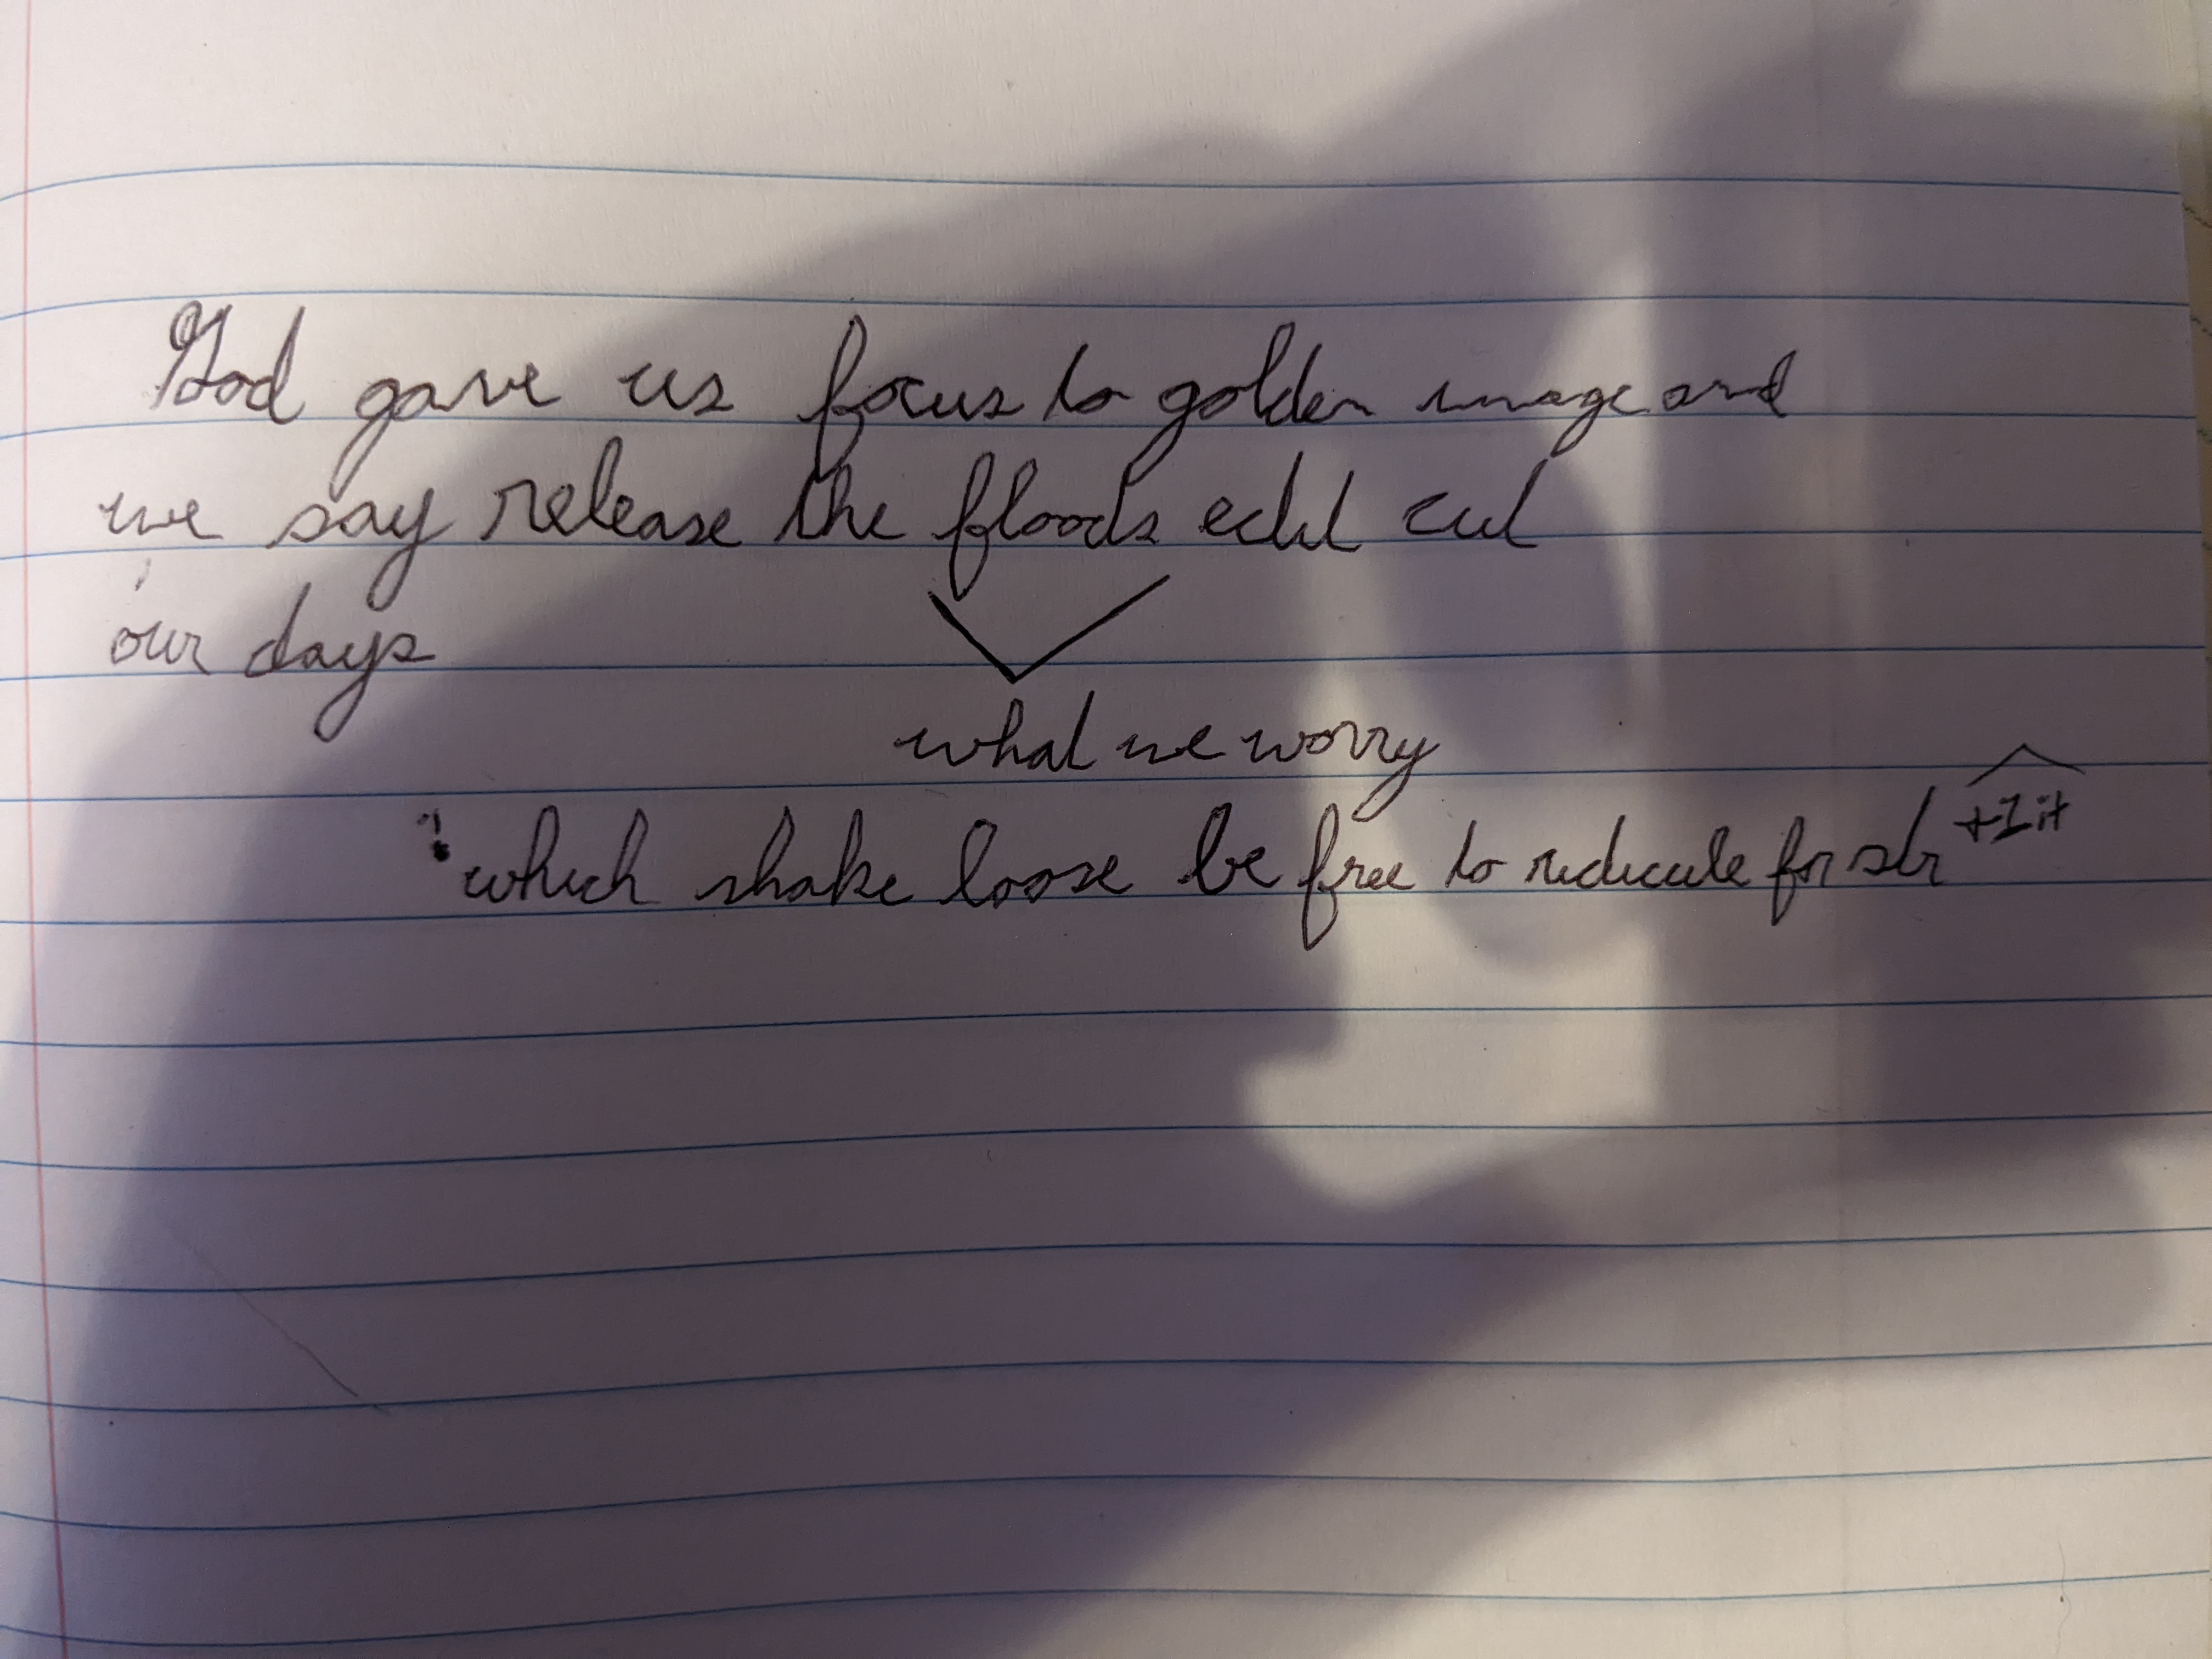 God gave us focus to golden image and
we say release the floods edit cut
our days
what we worry
which shake loose be free to redicule for
+1 it